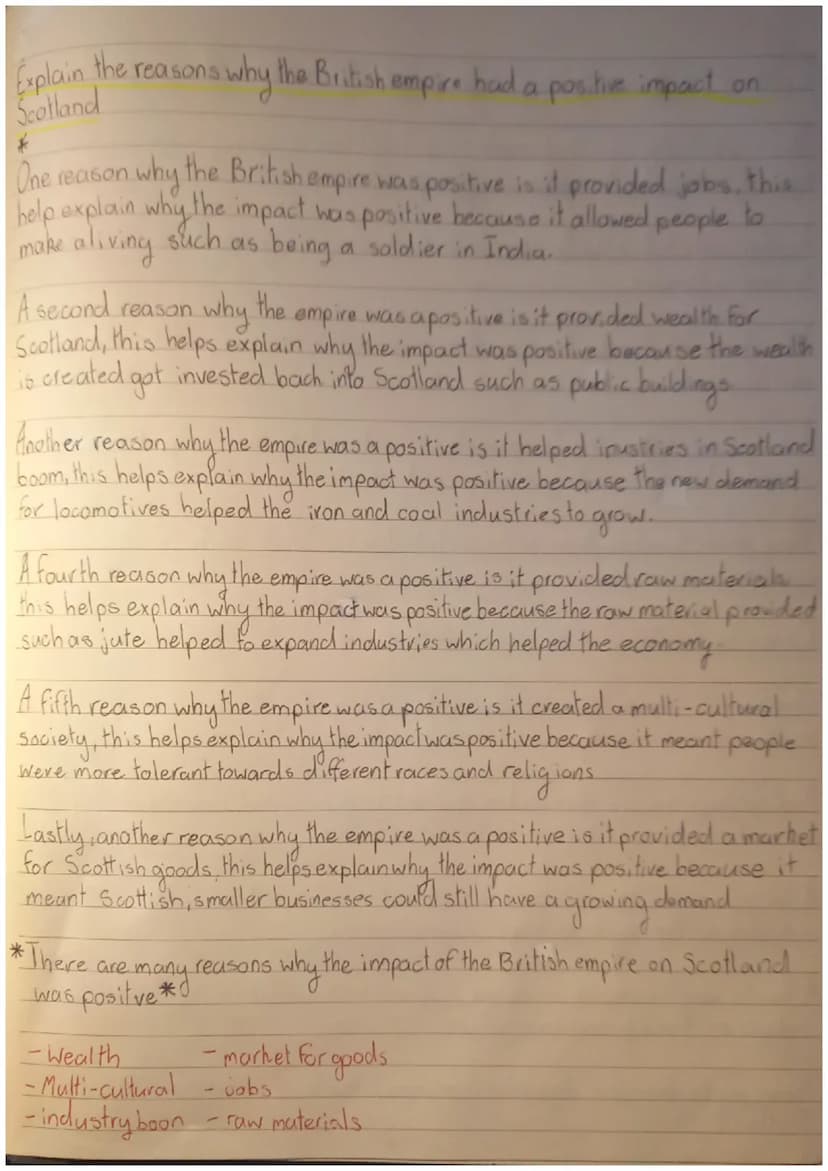 Explain the reasons why the British empire had a positive impact on
Scotland
*
One reason why the British empire was positive is it provided jobs, this
help explain why the impact was positive because it allowed people to
make a living such as being a soldier in India.
A second reason why the empire was a positive is it provided wealth for
Scotland, this helps explain why the impact was positive because the wealth
is created got invested back into Scotland such as public buildings
Another reason why the empire was a positive is it helped inustries in Scotland
boom, this helps explain why the impact was positive because the new demand
for locomotives helped the iron and coal industries to grow.
A fourth reason why the empire was a positive is it provided raw materials
this helps explain why the impact was positive because the raw material provided
such as jute helped to expand industries which helped the economy
A fifth reason why the empire was a positive is it created a multi-cultural
society, this helps explain why the impact was positive because it meant people
were more tolerant towards different races and religions
Lastly, another reason why the empire was a positive is it provided a market
for Scottish goods, this helps explain why the impact was positive because it
meant Scottish, smaller businesses could still have a growing demand
*There are many reasons why the impact of the British empire on Scotland
was positve*
- Wealth - market for goods
- Multi-cultural - jobs
- industry boon - raw materials